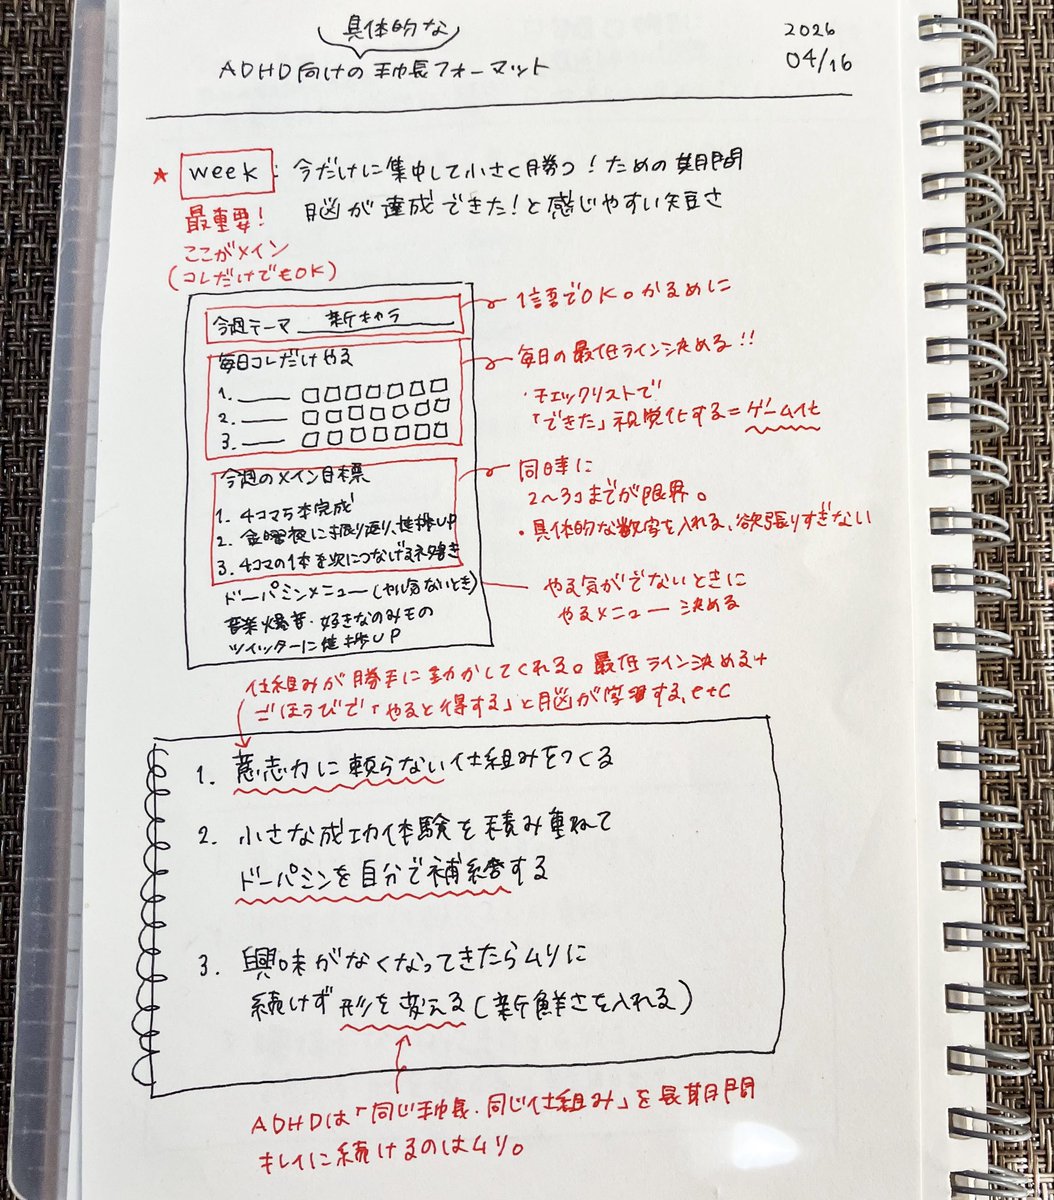 具体的な
ADHD向けの手帳フォーマット
2026
04/16
★ week : 今だけに集中して小さく勝つ!ための期間
脳が達成できた!と感じやすい短さ
最重要!
ここがメイン
(コレだけでもOK)
今週テーマ 新キャラ
1語でOK。かるめに
毎日コレだけやる
1. □□□□□□□
2. □□□□□□□
3. □□□□□□□
毎日の最低ライン決める!!
・チェックリストで
「できた」視覚化する=ゲーム化
今週のメイン目標
1. 4コマ5本完成
2. 金曜夜に振り返り、進捗UP
3. 4コマの1本を次につなげるネタ書き
同時に
2〜3コまでが限界。
・具体的な数字を入れる、欲張りすぎない
ドーパミンメニュー(やる気ないとき)
音楽爆音・好きなのみもの
ツイッターに進捗UP
やる気がでないときに
やるメニュー決める
仕組みが勝手に動かしてくれる。最低ライン決める+
ごほうびで「やると得する」と脳が学習する、etc
1. 意志力に頼らない仕組みをつくる
2. 小さな成功体験を積み重ねて
ドーパミンを自分で補給する
3. 興味がなくなってきたらムリに
続けず形を変える(新鮮さを入れる)
ADHDは「同じ手帳・同じ仕組み」を長期間
キレイに続けるのはムリ。